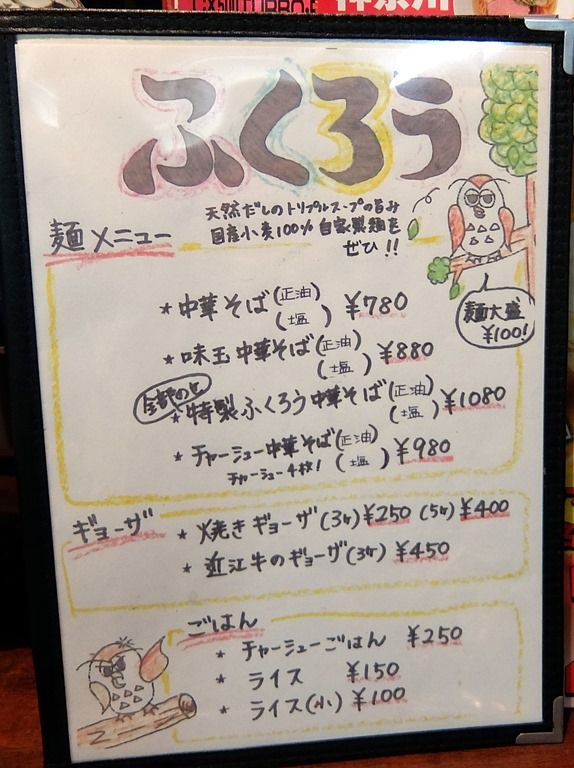 ふくろう
天然だしのトリプルスープの旨み
国産小麦100% 自家製麺を
ぜひ!!
麺メニュー
麺大盛
¥100!
★中華そば(正油)
(塩) ¥780
★味玉中華そば(正油)
(塩) ¥880
全部のせ
★特製ふくろう中華そば(正油)
(塩) ¥1080
★チャーシュー中華そば(正油)
チャーシュー4枚! (塩) ¥980
ギョーザ
★焼きギョーザ(3ケ)¥250 (5ケ)¥400
★近江牛のギョーザ(3ケ) ¥450
ごはん
★チャーシューごはん ¥250
★ライス ¥150
★ライス(小) ¥100